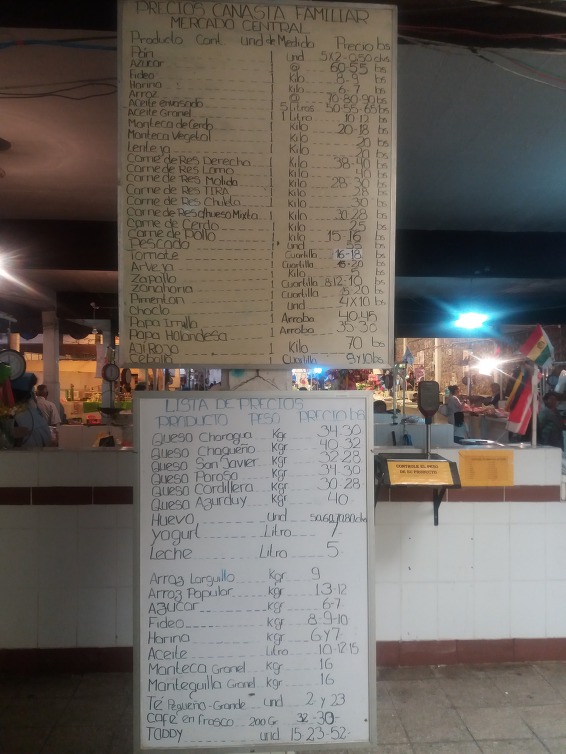 PRECIOS CANASTA FAMILIAR
MERCADO CENTRAL
Producto Cant. und de Medida Precio bs
Pan 1 und 5x2-0,50 ctvs
Azucar 1 @ 60-55 bs
Fideo 1 Kilo 8-9 bs
Harina 1 Kilo 6-7 bs
Arroz 1 @ 70-80-90 bs
Aceite envasado 5 Litros 50-55-65 bs
Aceite Granel 1 Litro 10-12 bs
Manteca de Cerdo 1 Kilo 20-18 bs
Manteca Vegetal 1 Kilo 20 bs
Lenteja 1 Kilo bs
Carne de Res Derecha 1 Kilo 38-40 bs
Carne de Res Lomo 1 Kilo 40 bs
Carne de Res Molida 1 Kilo 28-30 bs
Carne de Res TIRA 1 Kilo 28 bs
Carne de Res Chuleta 1 Kilo 30 bs
Carne de Res c/hueso Mixta 1 Kilo 30-28 bs
Carne de Cerdo 1 Kilo 25 bs
Carne de Pollo 1 Kilo 15-16 bs
Pescado 1 und bs
Tomate 1 Cuartilla 16-18 bs
Arveja 1 Cuartilla 15-20 bs
Zapallo 1 Kilo 5 bs
Zanahoria 1 Cuartilla 8-12-10 bs
Pimenton 1 Cuartilla 15-20 bs
Choclo 1 und 4x10 bs
Papa Imilla 1 Arroba 40-45
Papa Holandesa 1 Arroba 35-30
Aji Rojo 1 Kilo 70 bs
Cebolla 1 Cuartilla 9y10bs
LISTA DE PRECIOS
PRODUCTO PESO PRECIO bs
Queso Charagua Kgr 34-30
Queso Chaqueño Kgr 40-32
Queso San Javier Kgr 32-28
Queso Poroso Kgr 34-30
Queso Cordillera Kgr 30-28
Queso Azurduy Kgr 40
Huevo Und 50,60,70,80ctvs
Yogurt Litro 7
Leche Litro 5
Arroz Larguillo Kgr 9
Arroz Popular Kgr 13-12
Azucar Kgr 6-7
Fideo Kgr 8-9-10
Harina Kgr 6 y 7
Aceite Litro 10-12-15
Manteca Granel Kgr 16
Mantequilla Granel Kgr 16
Té Pequeño-Grande und 2 y 23
Café en frasco 200 Gr 32-30-
TODDY und 15-23-52-
CONTROLE EL PESO
DE SU PRODUCTO